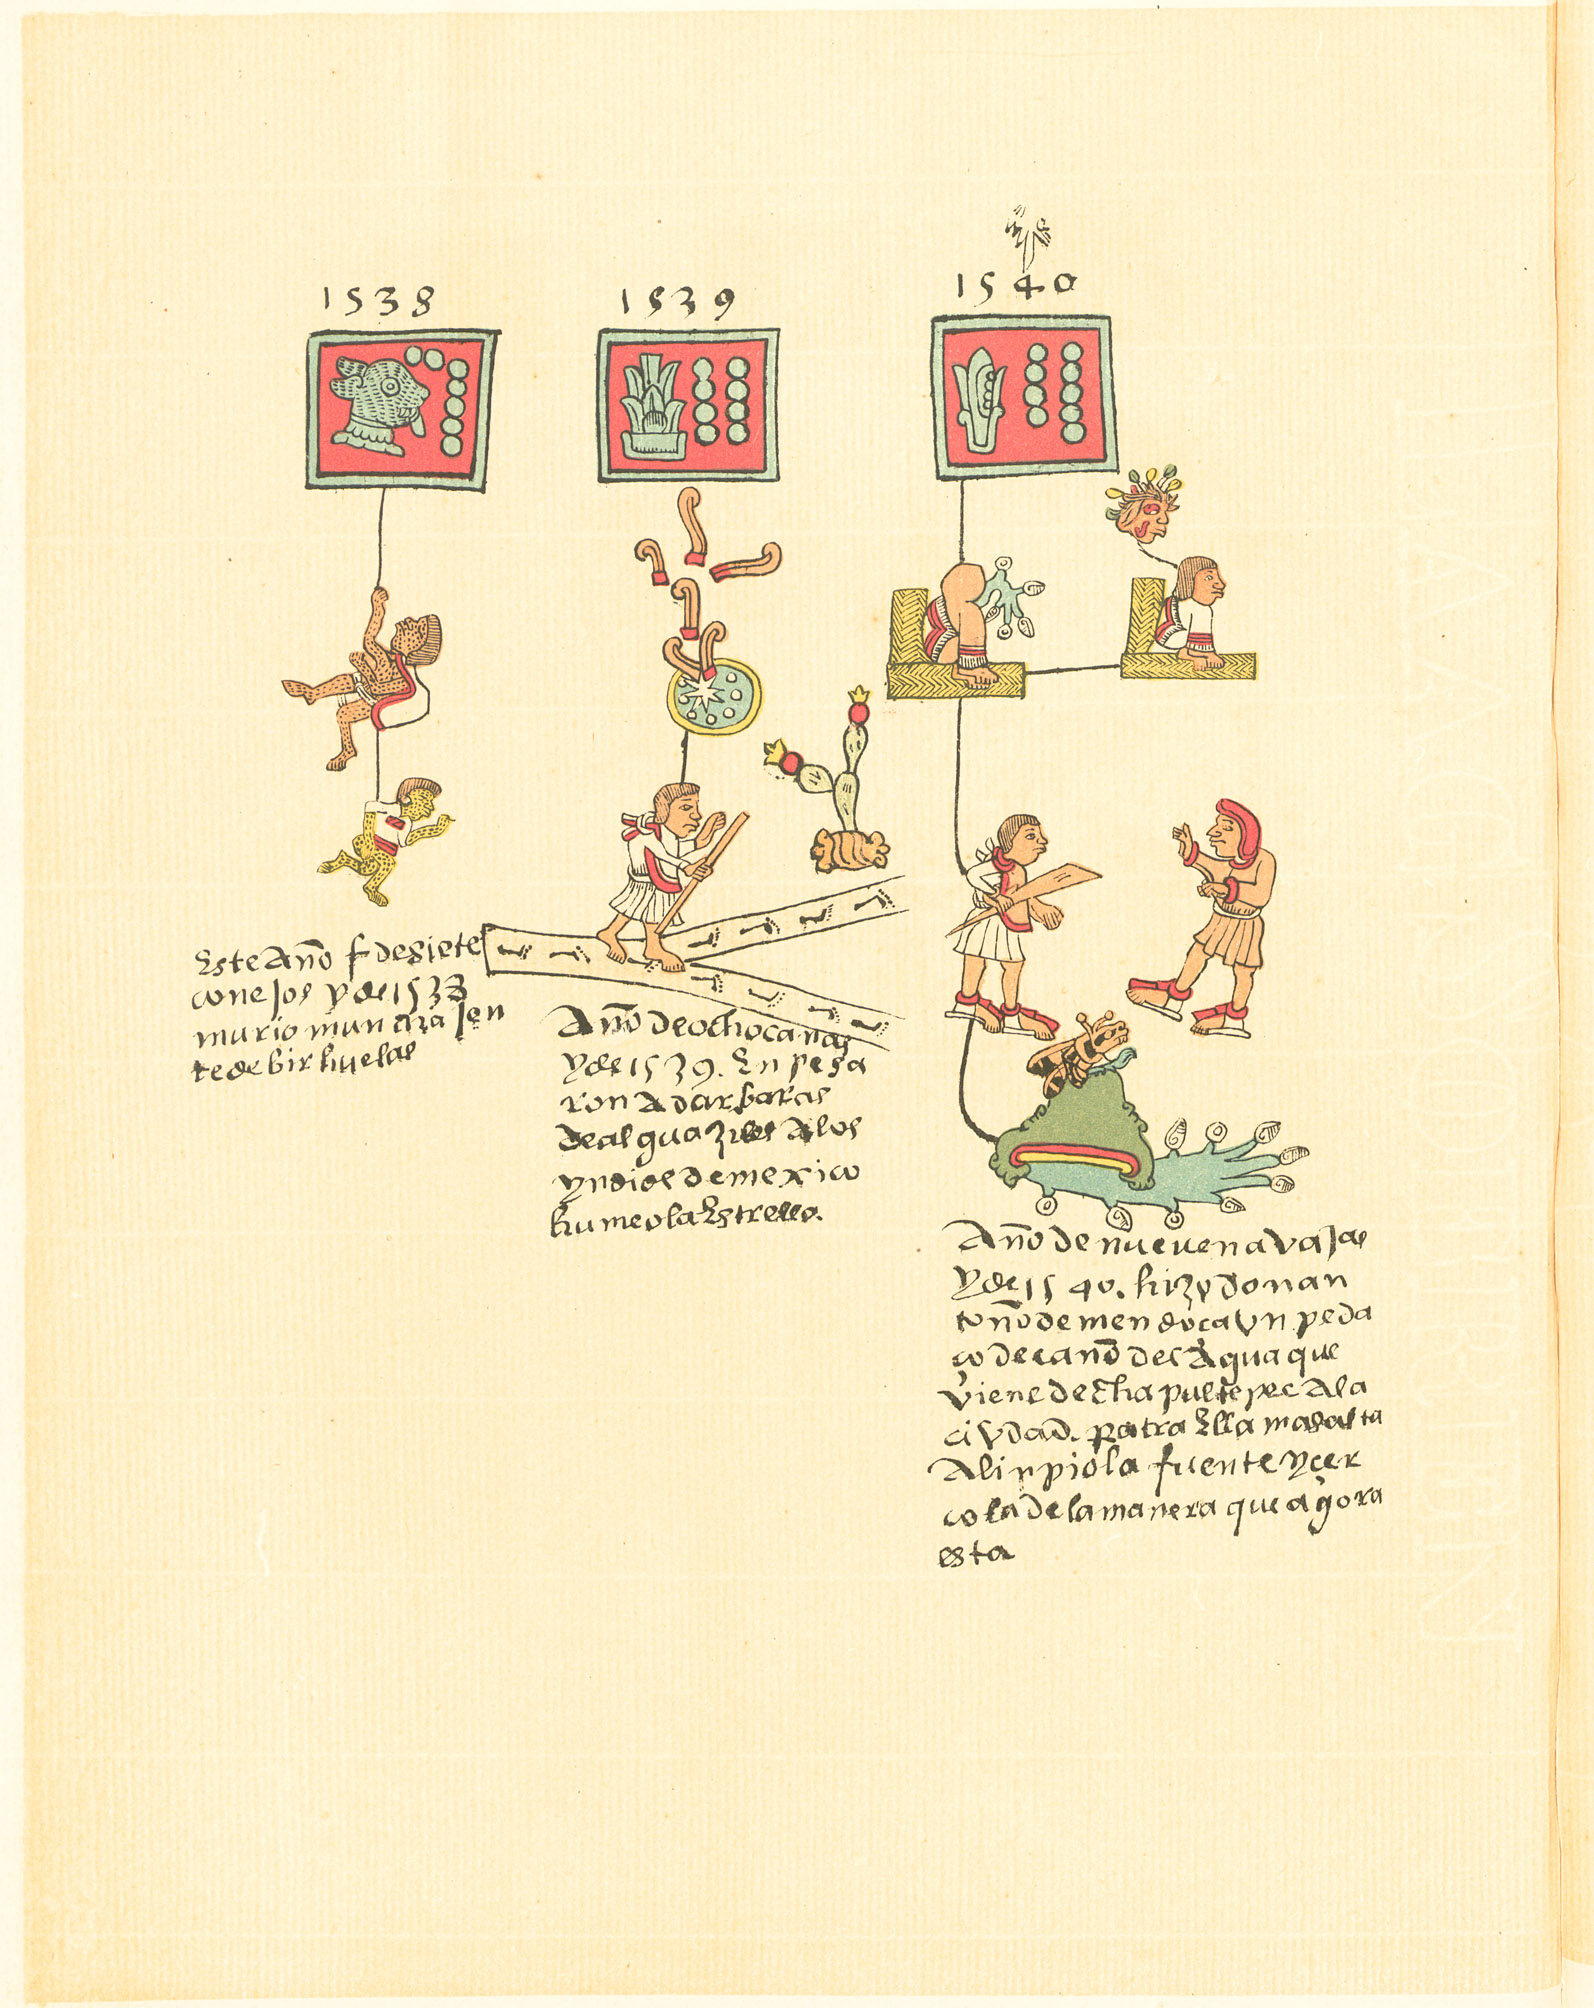 1538
1539
1540
Este Año f de siete
conejos y de 1538
murio mun cha jen
te de birhuelas
Año de ocho cañas
y de 1539. En pesa
ron A dar baras
de alguaziles A los
yndios de mexico
humeo la Estrella.
Año de nueve navajas
y de 1540. hizo don an
toño de mendoca un peda
co de caño del Agua que
viene de Chapultepec Ala
ciudad. Para Ella mas alta
Alinpio la fuente y cer
cola de la manera que agora
esta